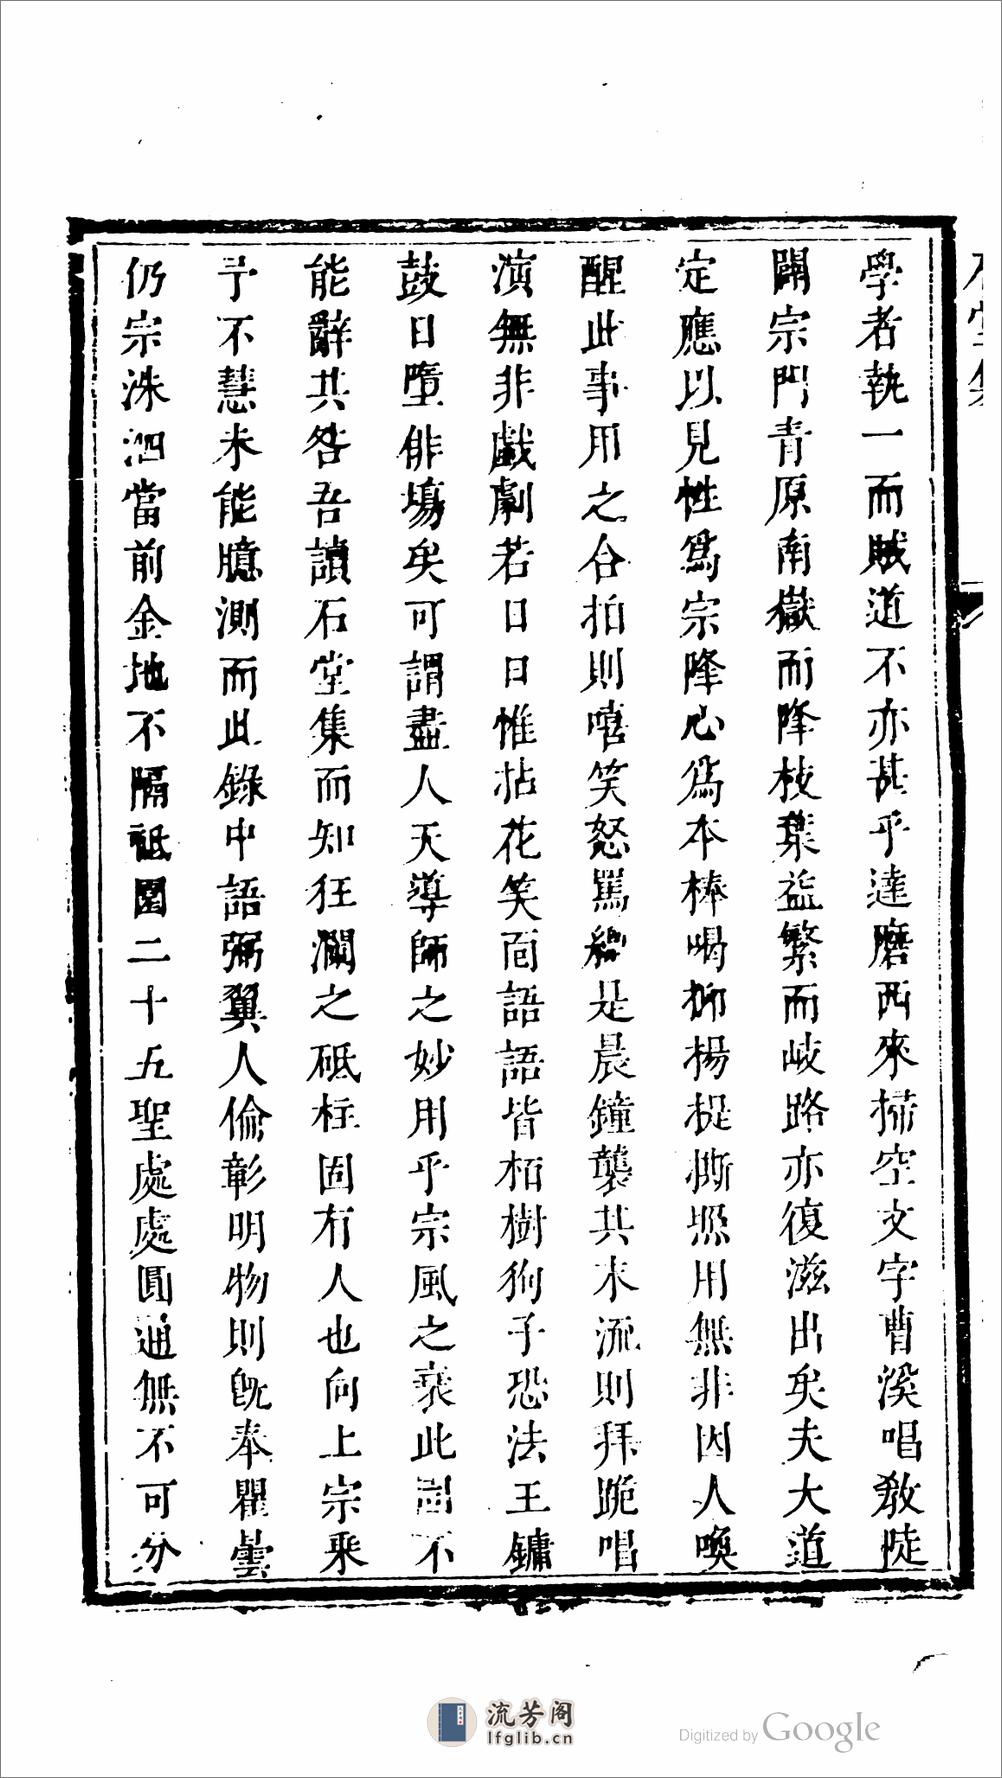 學者執一而賊道不亦甚乎達磨西來掃空文字曹溪唱教陡
開宗門青原南嶽而降枝葉益繁而岐路亦復滋出矣夫大道
定應以見性爲宗降心爲本棒喝抑揚提撕照用無非因人喚
醒此事用之合拍則嘻笑怒罵總是晨鐘襲其末流則拜跪唱
演無非戲劇若日日惟拈花笑而語語皆栢樹狗子恐法王鏞
鼓日墮俳場矣可謂盡人天導師之妙用乎宗風之衰此固不
能辭其咎吾讀石堂集而知狂瀾之砥柱固有人也向上宗乘
予不慧未能臆測而此錄中語弼翼人倫彰明物則既奉瞿曇
仍宗洙泗當前金地不隔祗園二十五聖處處圓通無不可分
石堂集
流芳阁
lfglib.cn
Digitized by Google